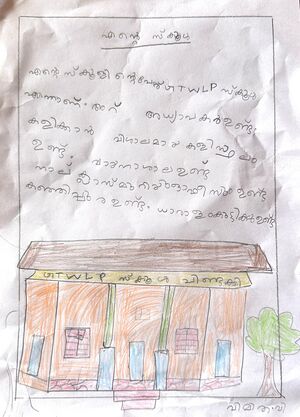 എന്റെ സ്കൂൾ
എന്റെ സ്കൂളിന്റെപേര് GTWLP സ്കൂൾ
എന്നാണ്. ആറ് അധ്യാപകർഉണ്ട്.
കളിക്കാൻ വിശാലമായ കളിസ്ഥലം
ഉണ്ട് വായനാശാല ഉണ്ട്
നാല് ക്ലാസ്മുറിയുംഓഫീസും ഉണ്ട്
കഞ്ഞിപ്പുര ഉണ്ട്. ധാരാളംകുട്ടികൾഉണ്ട്
GTWLP സ്കൂൾ